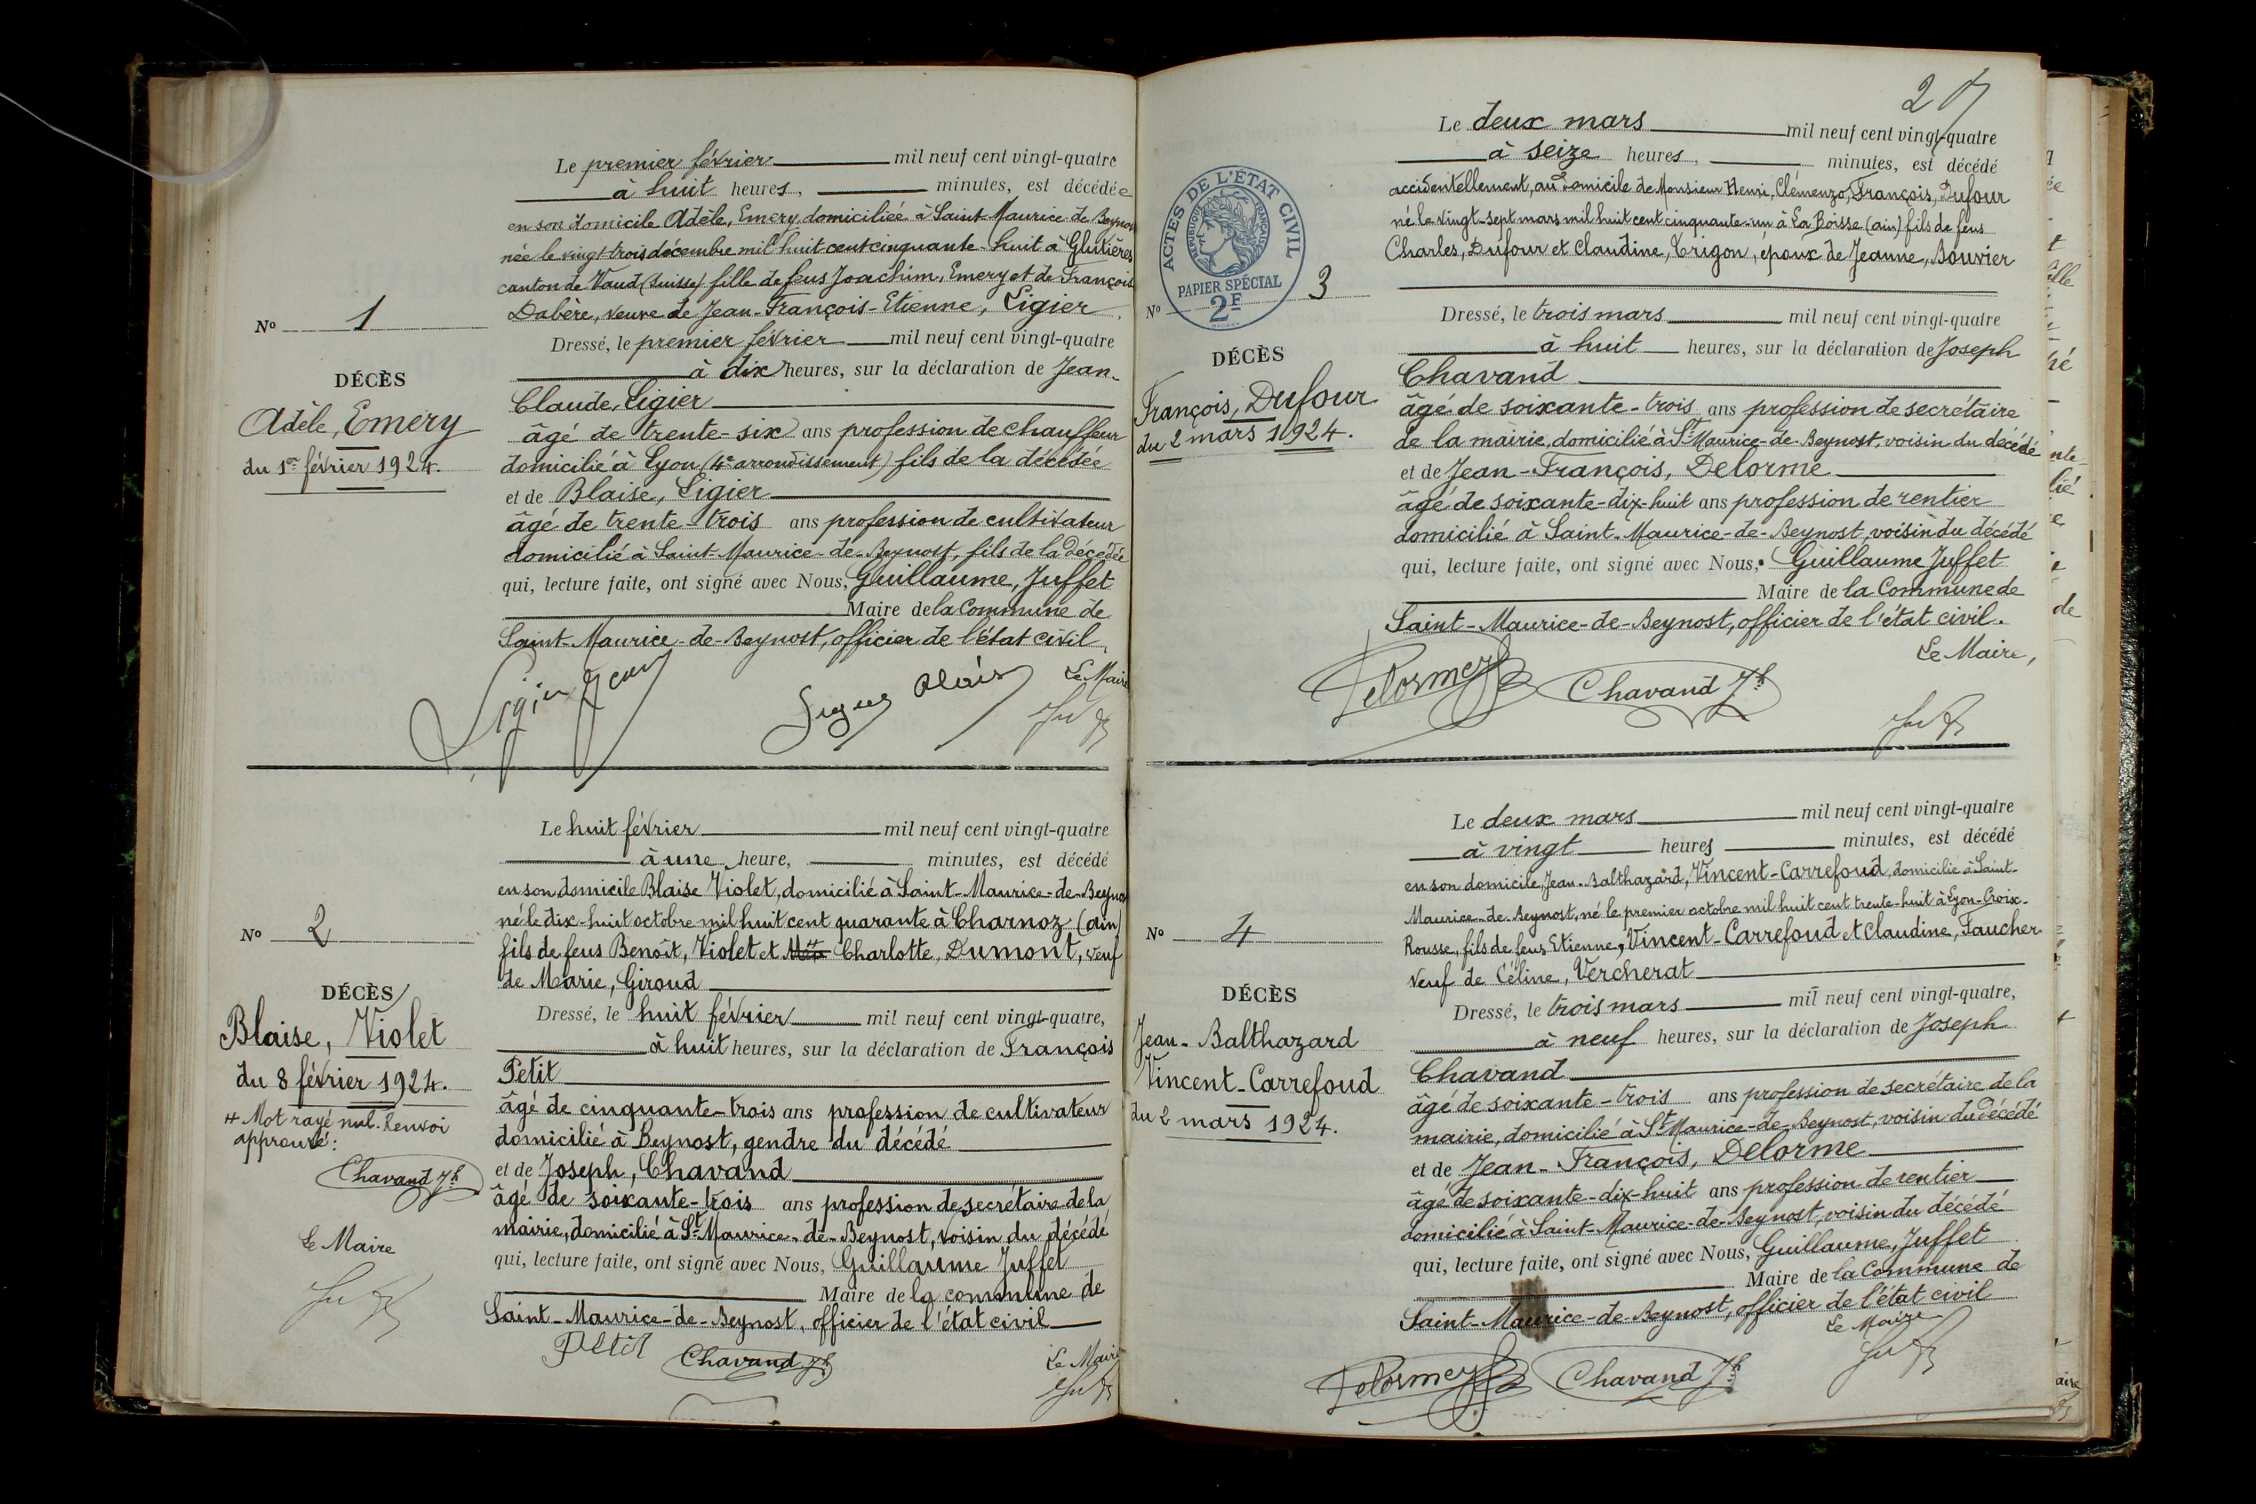 Le premier février mil neuf cent vingt-quatre
à huit heures, minutes, est décédée
en son domicile Adèle, Emery, domiciliée à Saint-Maurice-de-Beynost
née le vingt-trois décembre mil huit cent cinquante-huit à Glutières
canton de Vaud (Suisse) fille de feus Joachim, Emery et de François
Dabère, veuve de Jean-François-Etienne, Ligier
Dressé, le premier février mil neuf cent vingt-quatre
à dix heures, sur la déclaration de Jean-
Claude, Ligier
âgé de trente-six ans profession de chauffeur
domicilié à Lyon (4e arrondissement) fils de la décédée
et de Blaise, Ligier
âgé de trente-trois ans profession de cultivateur
domicilié à Saint-Maurice-de-Beynost, fils de la décédée
qui, lecture faite, ont signé avec Nous, Guillaume, Juffet
Maire de la Commune de
Saint-Maurice-de-Beynost, officier de l'état civil,
Ligier Jean
Le Maire
No 1
DÉCÈS
Adèle, Emery
du 1er février 1924.
Le huit février mil neuf cent vingt-quatre
à une heure, minutes, est décédé
en son domicile Blaise Violet, domicilié à Saint-Maurice-de-Beynost
né le dix-huit octobre mil huit cent quarante à Charnoz (ain)
fils de feus Benoît, Violet et Charlotte, Dumont, veuf
de Marie, Giroud
Dressé, le huit février mil neuf cent vingt-quatre,
à huit heures, sur la déclaration de François
Petit
âgé de cinquante-trois ans profession de cultivateur
domicilié à Beynost, gendre du décédé
et de Joseph, Chavand
âgé de soixante-trois ans profession de secrétaire de la
mairie, domicilié à St-Maurice-de-Beynost, voisin du décédé
qui, lecture faite, ont signé avec Nous, Guillaume Juffet
Maire de la commune de
Saint-Maurice-de-Beynost, officier de l'état civil
Petit Chavand Jh
Le Maire
No 2
DÉCÈS
Blaise, Violet
du 8 février 1924.
Mot rayé nul. Renvoi
approuvé:
Chavand Jh
Le Maire
Le deux mars mil neuf cent vingt-quatre
à seize heures, minutes, est décédé
accidentellement, au domicile de Monsieur Henri, Clémenzo, François, Dufour
né le vingt-sept mars mil huit cent cinquante-un à La Boisse (ain) fils de feus
Charles, Dufour et Claudine, Trigon, époux de Jeanne, Bouvier
Dressé, le trois mars mil neuf cent vingt-quatre
à huit heures, sur la déclaration de Joseph
Chavand
âgé de soixante-trois ans profession de secrétaire
de la mairie, domicilié à St-Maurice-de-Beynost, voisin du décédé
et de Jean-François, Delorme
âgé de soixante-dix-huit ans profession de rentier
domicilié à Saint-Maurice-de-Beynost, voisin du décédé
qui, lecture faite, ont signé avec Nous, Guillaume Juffet
Maire de la Commune de
Saint-Maurice-de-Beynost, officier de l'état civil.
Le Maire,
Delorme Chavand Jh
ACTES DE L'ÉTAT CIVIL
RÉPUBLIQUE FRANÇAISE
PAPIER SPÉCIAL
2F
No 3
DÉCÈS
François, Dufour
du 2 mars 1924.
Le deux mars mil neuf cent vingt-quatre
à vingt heures minutes, est décédé
en son domicile, Jean-Balthazard, Vincent-Carrefoud, domicilié à Saint-
Maurice-de-Beynost, né le premier octobre mil huit cent trente-huit à Lyon-Croix-
Rousse, fils de feus Etienne, Vincent-Carrefoud et Claudine, Faucher
veuf de Céline, Vercherat
Dressé, le trois mars mil neuf cent vingt-quatre,
à neuf heures, sur la déclaration de Joseph
Chavand
âgé de soixante-trois ans profession de secrétaire de la
mairie, domicilié à St-Maurice-de-Beynost, voisin du décédé
et de Jean-François, Delorme
âgé de soixante-dix-huit ans profession de rentier
domicilié à Saint-Maurice-de-Beynost, voisin du décédé
qui, lecture faite, ont signé avec Nous, Guillaume, Juffet
Maire de la Commune de
Saint-Maurice-de-Beynost, officier de l'état civil
Le Maire
Delorme Chavand Jh
No 4
DÉCÈS
Jean-Balthazard
Vincent-Carrefoud
du 2 mars 1924.